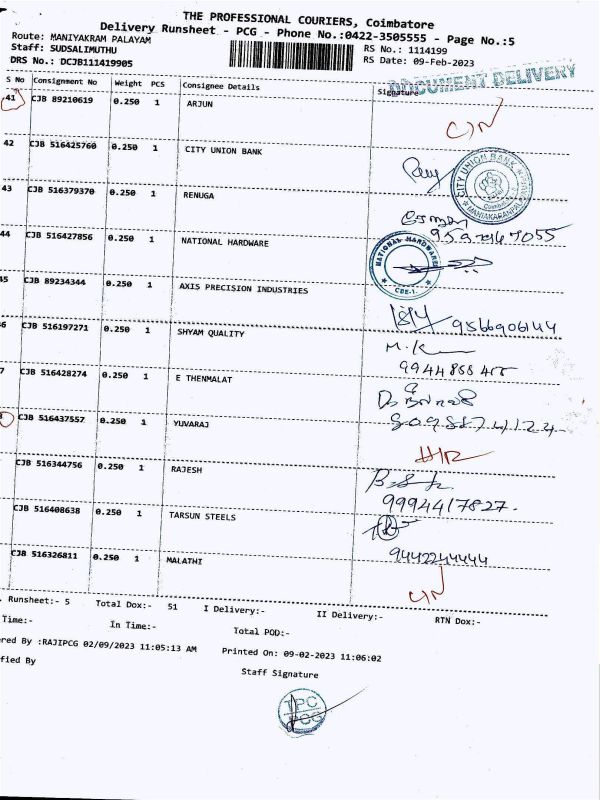 THE PROFESSIONAL COURIERS, Coimbatore
Delivery Runsheet - PCG - Phone No.:0422-3505555 - Page No.:5
Route: MANIYAKRAM PALAYAM
RS No.: 1114199
Staff: SUDSALIMUTHU
RS Date: 09-Feb-2023
DRS No.: DCJB111419905
DOCUMENT DELIVERY
S No Consignment No Weight PCS Consignee Details Signature
41 CJB 89210619 0.250 1 ARJUN
42 CJB 516425760 0.250 1 CITY UNION BANK
CITY UNION BANK
43 CJB 516379370 0.250 1 RENUGA
44 CJB 516427856 0.250 1 NATIONAL HARDWARE
NATIONAL HARDWARE
CBE-1.
45 CJB 89234344 0.250 1 AXIS PRECISION INDUSTRIES
9566906144
6 CJB 516197271 0.250 1 SHYAM QUALITY
M.K
7 CJB 516428274 0.250 1 E THENMALAT
CJB 516437557 0.250 1 YUVARAJ
CJB 516344756 0.250 1 RAJESH
9994417827.
CJB 516408638 0.250 1 TARSUN STEELS
9442244444
CJB 516326811 0.250 1 MALATHI
. Runsheet:- 5 Total Dox:- 51 I Delivery:- II Delivery:- RTN Dox:-
Time:- In Time:- Total POD:-
red By :RAJIPCG 02/09/2023 11:05:13 AM Printed On: 09-02-2023 11:06:02
fied By
Staff Signature
TPC
PCG